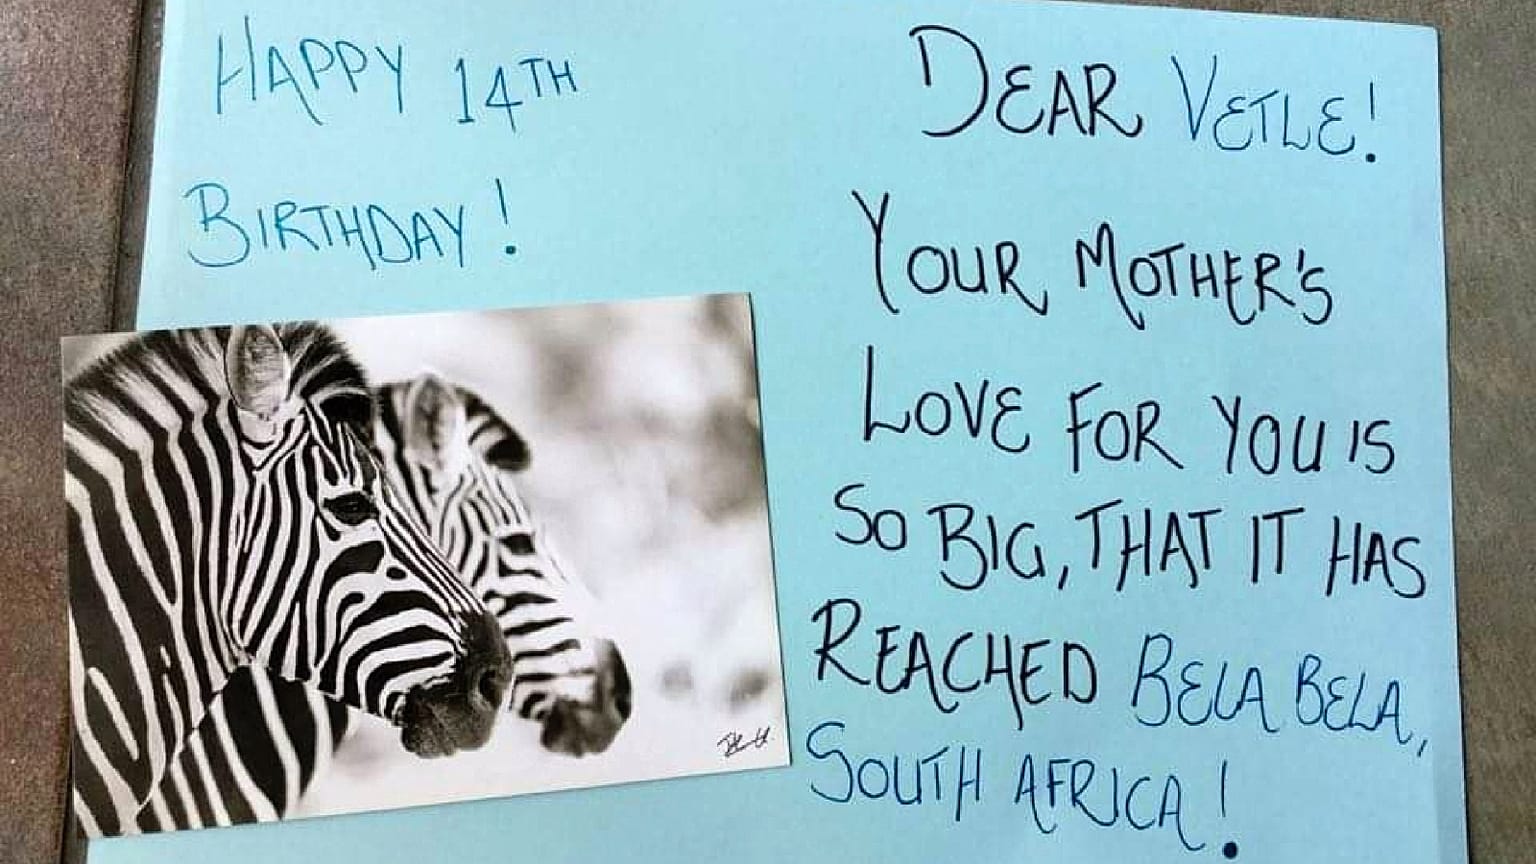 HAPPY 14TH
BIRTHDAY!
DEAR VETLE!
YOUR MOTHER'S
LOVE FOR YOU IS
SO BIG, THAT IT HAS
REACHED BELA BELA,
SOUTH AFRICA!